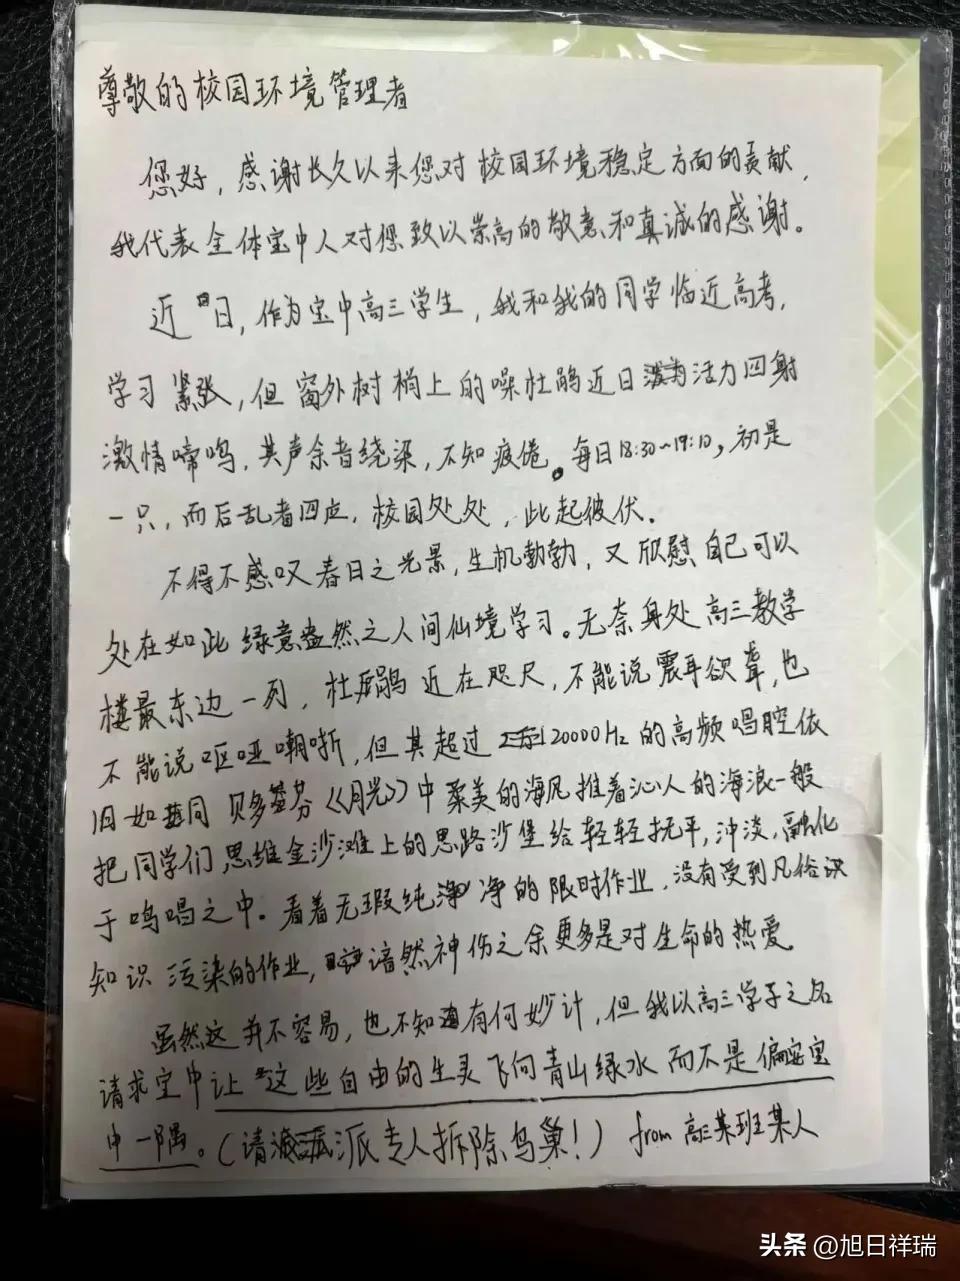 尊敬的校园环境管理者
您好，感谢长久以来您对校园环境稳定方面的贡献，
我代表全体宝中人对您致以崇高的敬意和真诚的感谢。
近日，作为宝中高三学生，我和我的同学临近高考，
学习紧张，但窗外树梢上的噪杜鹃近日活力四射
激情啼鸣，其声余音绕梁，不知疲倦。每日18:30~19:10，初是
一只，而后乱者四点，校园处处，此起彼伏.
不得不感叹春日之光景，生机勃勃，又欣慰自己可以
处在如此绿意盎然之人间仙境学习。无奈身处高三教学
楼最东边一列，杜鹃近在咫尺，不能说震耳欲聋，也
不能说呕哑嘲哳，但其超过20000Hz的高频唱腔依
旧如同贝多芬《月光》中柔美的海风推着沁人的海浪一般
把同学们思维金沙滩上的思路沙堡给轻轻抚平，冲淡，融化
于鸣唱之中。看着无瑕纯净的限时作业，没有受到凡俗识
知识污染的作业，谙然神伤之余更多是对生命的热爱
虽然这并不容易，也不知有何妙计，但我以高三学子之名
请求宝中让这些自由的生灵飞向青山绿水而不是偏安宝
中一隅。（请派专人拆除鸟巢！）from 高三某班某人
头条 @旭日祥瑞